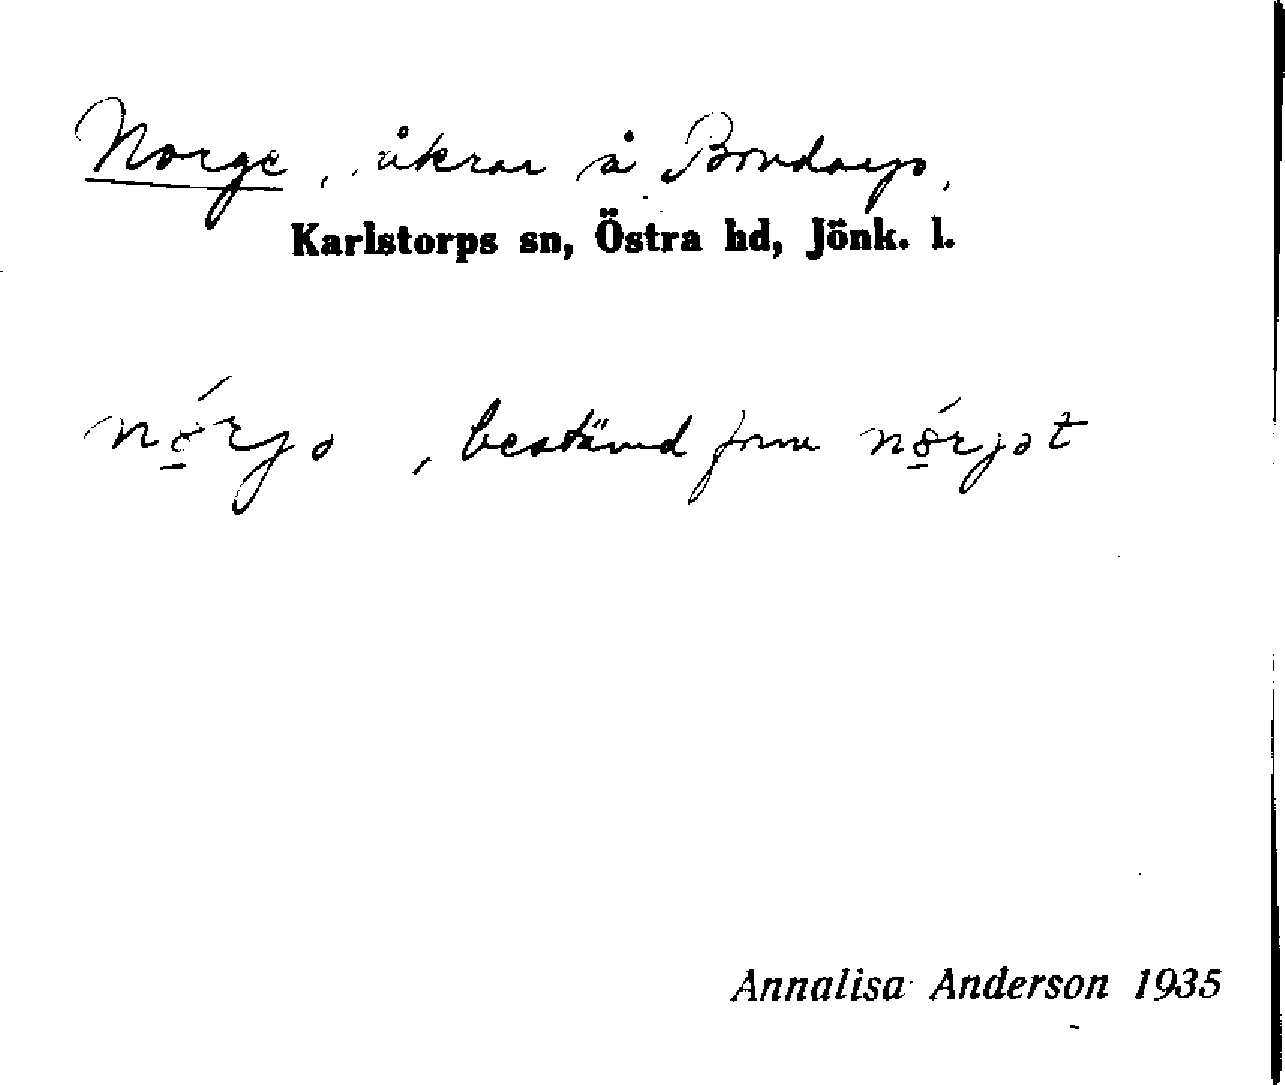 Norge, åkrar å Bondarp,
Karlstorps sn, Östra hd, Jönk. l.
, bestämd form
Annalisa Anderson 1935